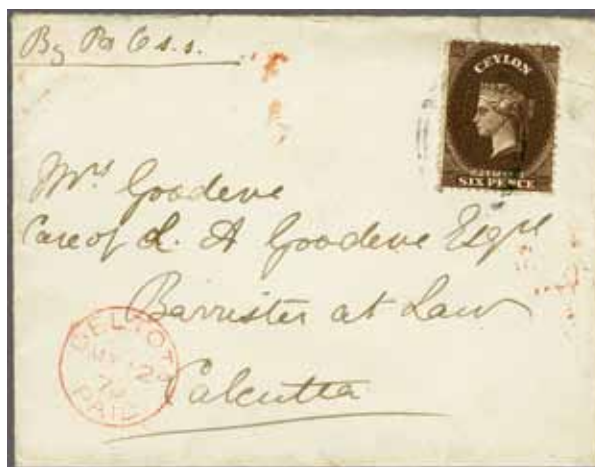 By P&O s.s.
CEYLON
POSTAGE
SIX PENCE
Mrs Goodeve
Care of L. A Goodeve Esqre
Barrister at Law
Calcutta
DELTOTA
PAID